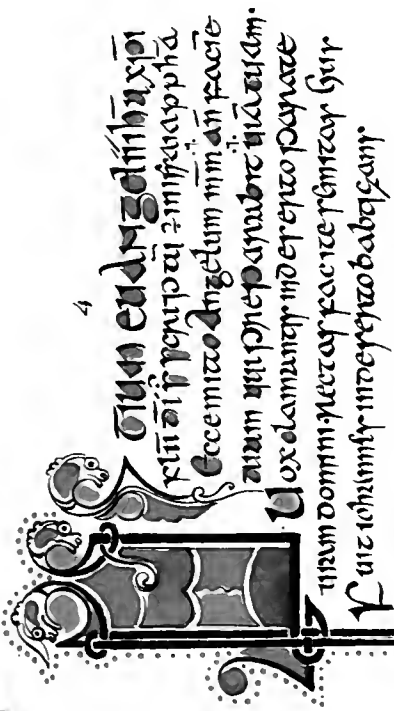 4
Initium euangelii ihu xpi
filii di sic scriptū ÷ in isaia propha
Ecce mitto angelum mm an facie
tuam qui preparabit uiā tuam.
Uox clamantis in deserto parate
uiam domini. rectas facite semitas eius
Fuit iohannis in deserto babtizans.